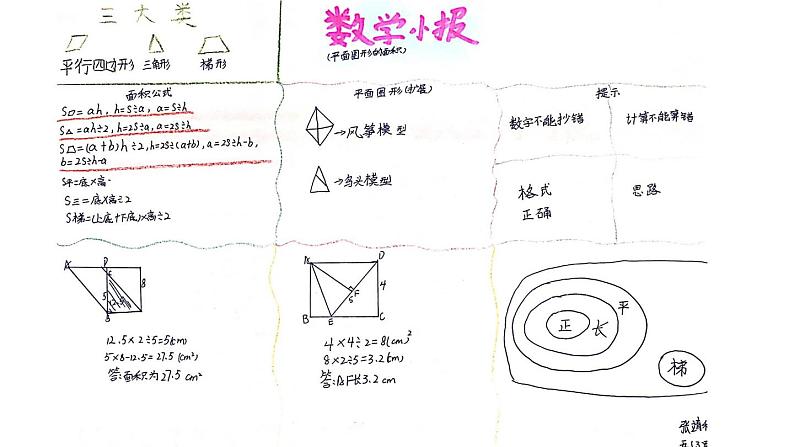 三大类
平行四边形 三角形 梯形
数学小报
(平面图形的面积)
面积公式
S▱=ah, h=S÷a, a=S÷h
S△=ah÷2, h=2S÷a, a=2S÷h
S⏢=(a+b)h÷2, h=2S÷(a+b), a=2S÷h-b,
b=2S÷h-a
S平=底×高
S三=底×高÷2
S梯=(上底+下底)×高÷2
平面图形(扩装)
→风筝模型
→鸟头模型
提示
数字不能抄错
计算不能算错
格式
正确
思路
A D
8
5
B
12.5×2÷5=5(cm)
5×8-12.5=27.5(cm²)
答:面积为27.5cm²
A D
4
F
5
B E C
4×4÷2=8(cm²)
8×2÷5=3.2(cm)
答:AF长3.2cm
平
长
正
梯
张靖